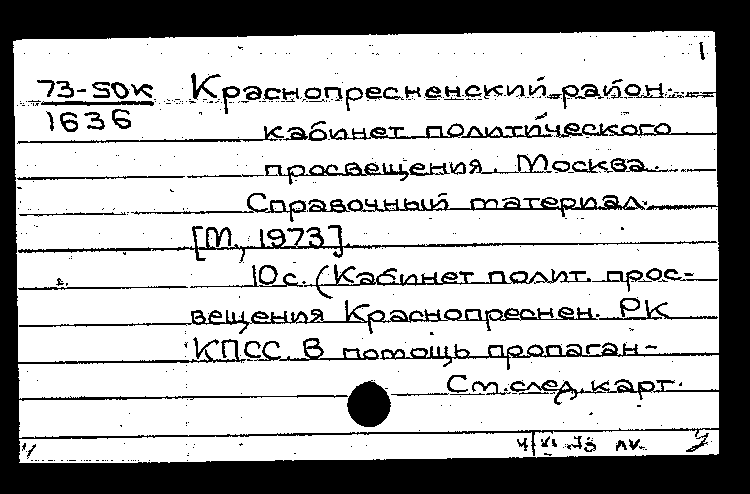 1
73-50к Краснопресненский район.
1636
кабинет политического
просвещения. Москва.
Справочный материал.
[М., 1973].
10 с. (Кабинет полит. прос-
вещения Краснопреснен. РК
КПСС. В помощь пропаган-
См. след. карт.
4/XI 73